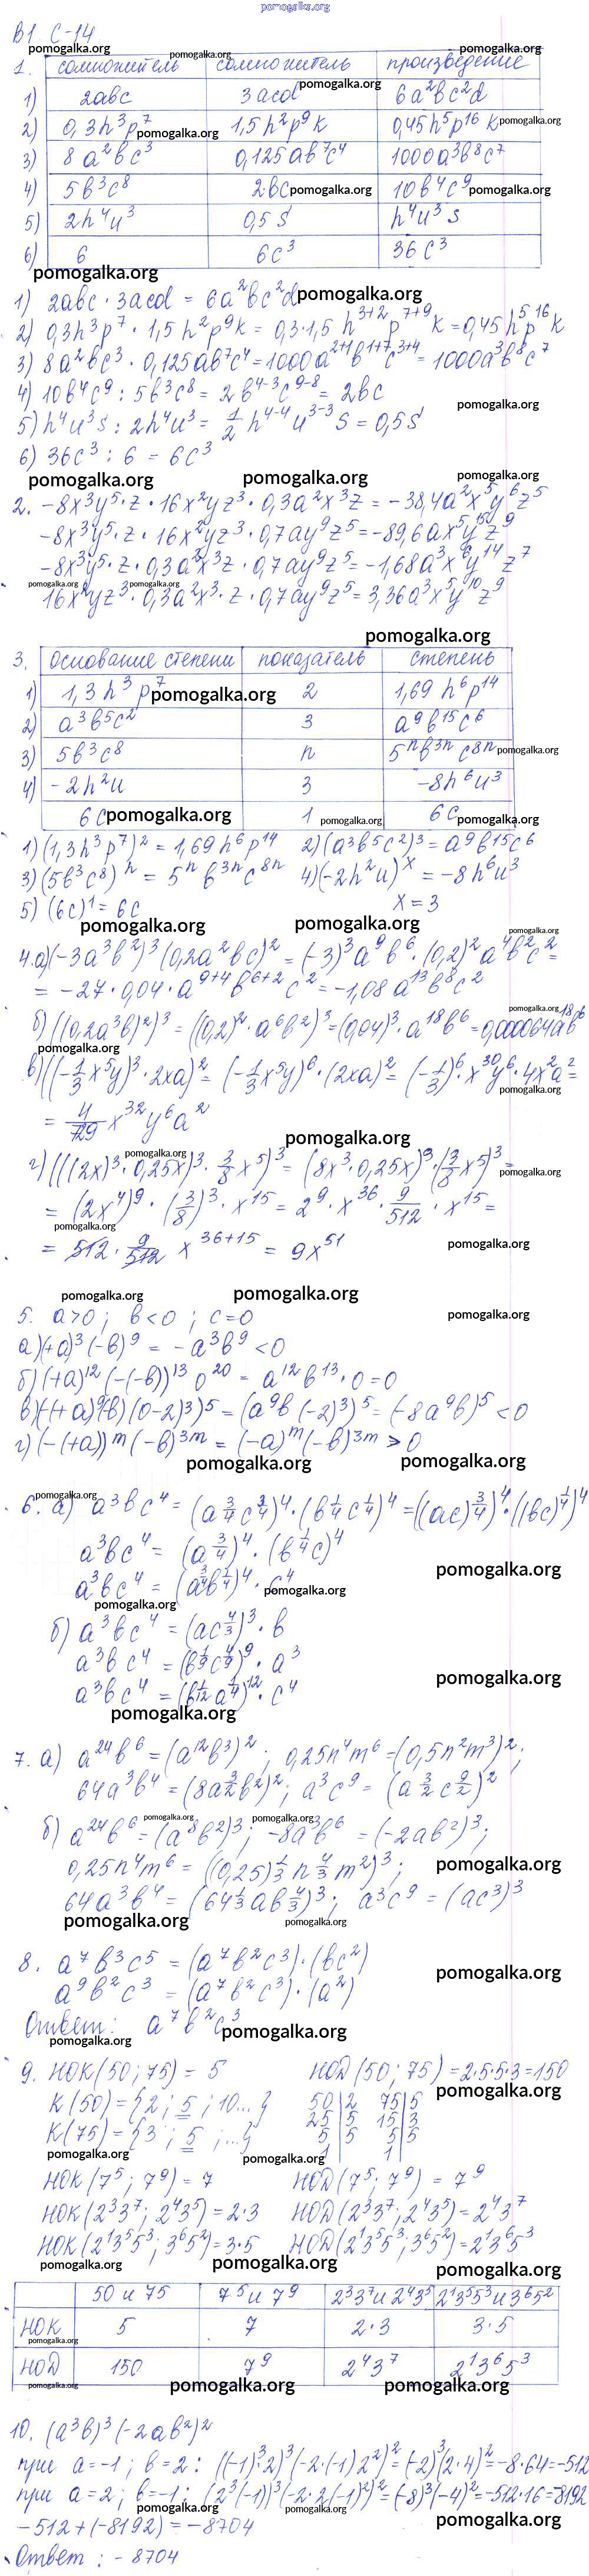 pomogalka.org
В1 С-14
1. сомножитель сомножитель произведение
1) 2abc 3acd 6a²bc²d
2) 0,3h³p⁷ 1,5h²p⁹k 0,45h⁵p¹⁶k
3) 8a²bc³ 0,125ab⁷c⁴ 1000a³b⁸c⁷
4) 5b³c⁸ 2bc 10b⁴c⁹
5) 2h⁴u³ 0,5s h⁴u³s
6) 6 6c³ 36c³
1) 2abc · 3acd = 6a²bc²d
2) 0,3h³p⁷ · 1,5h²p⁹k = 0,3·1,5 h³⁺²p⁷⁺⁹k = 0,45h⁵p¹⁶k
3) 8a²bc³ · 0,125ab⁷c⁴ = 1000a²⁺¹b¹⁺⁷c³⁺⁴ = 1000a³b⁸c⁷
4) 10b⁴c⁹ : 5b³c⁸ = 2b⁴⁻³c⁹⁻⁸ = 2bc
5) h⁴u³s : 2h⁴u³ = 1/2 h⁴⁻⁴u³⁻³s = 0,5s
6) 36c³ : 6 = 6c³
2. -8x³y⁵·z · 16x²yz³ · 0,3a²x³z = -38,4a²x⁵y⁶z⁵
-8x³y⁵·z · 16x²yz³ · 0,7ay⁹z⁵ = -89,6ax⁵y¹⁵z⁹
-8x³y⁵·z · 0,3a²x³z · 0,7ay⁹z⁵ = -1,68a³x⁶y¹⁴z⁷
16x²yz³ · 0,3a²x³·z · 0,7ay⁹z⁵ = 3,36a³x⁵y¹⁰z⁹
3. основание степени показатель степень
1) 1,3h³p⁷ 2 1,69h⁶p¹⁴
2) a³b⁵c² 3 a⁹b¹⁵c⁶
3) 5b³c⁸ n 5ⁿb³ⁿc⁸ⁿ
4) -2h²u 3 -8h⁶u³
6c 1 6c
1) (1,3h³p⁷)² = 1,69h⁶p¹⁴ 2) (a³b⁵c²)³ = a⁹b¹⁵c⁶
3) (5b³c⁸)ⁿ = 5ⁿb³ⁿc⁸ⁿ 4) (-2h²u)ˣ = -8h⁶u³
5) (6c)¹ = 6c x = 3
4. а) (-3a³b²)³(0,2a²bc)² = (-3)³a⁹b⁶·(0,2)²a⁴b²c² =
= -27·0,04·a⁹⁺⁴b⁶⁺²c² = -1,08a¹³b⁸c²
б) ((0,2a³b)²)³ = ((0,2)²·a⁶b²)³ = (0,04)³·a¹⁸b⁶ = 0,000064a¹⁸b⁶
в) ((-1/3x⁵y)³·2xa)² = (-1/3x⁵y)⁶·(2xa)² = (-1/3)⁶·x³⁰y⁶·4x²a² =
= 4/729 x³²y⁶a²
г) (((2x)³·0,25x)³·3/8x⁵)³ = (8x³·0,25x)⁹·(3/8x⁵)³ =
= (2x⁴)⁹·(3/8)³·x¹⁵ = 2⁹·x³⁶·9/512·x¹⁵ =
= 512·9/512 x³⁶⁺¹⁵ = 9x⁵¹
5. a>0; b<0; c=0
а) (+a)³(-b)⁹ = -a³b⁹ < 0
б) (+a)¹²(-(-b))¹³0²⁰ = a¹²b¹³·0 = 0
в) ((+a)⁹(b)(0-2)³)⁵ = (a⁹b(-2)³)⁵ = (-8a⁹b)⁵ < 0
г) (-(+a))ᵐ(-b)³ᵐ = (-a)ᵐ(-b)³ᵐ > 0
6. а) a³bc⁴ = (a^3/4 c^3/4)⁴·(b^1/4 c^1/4)⁴ = ((ac)^3/4)⁴·((bc)^1/4)⁴
a³bc⁴ = (a^3/4)⁴·(b^1/4 c)⁴
a³bc⁴ = (a^3/4 b^1/4)⁴·c⁴
б) a³bc⁴ = (ac^4/3)³·b
a³bc⁴ = (b^1/9 c^4/9)⁹·a³
a³bc⁴ = (b^1/12 a^1/4)¹²·c⁴
7. а) a²⁴b⁶ = (a¹²b³)²; 0,25n⁴m⁶ = (0,5n²m³)²;
64a³b⁴ = (8a^3/2 b²)²; a³c⁹ = (a^3/2 c^9/2)²
б) a²⁴b⁶ = (a⁸b²)³; -8a³b⁶ = (-2ab²)³;
0,25n⁴m⁶ = ((0,25)^1/3 n^4/3 m²)³;
64a³b⁴ = (64^1/3 ab^4/3)³; a³c⁹ = (ac³)³
8. a⁷b³c⁵ = (a⁷b²c³)·(bc²)
a⁹b²c³ = (a⁷b²c³)·(a²)
Ответ: a⁷b²c³
9. НОК(50; 75) = 5 НОД(50; 75) = 2·5·5·3 = 150
К(50) = {2; 5; 10...} 50|2 75|5
К(75) = {3; 5; ...} 25|5 15|3
5|5 5|5
1| 1|
НОК(7⁵; 7⁹) = 7 НОД(7⁵; 7⁹) = 7⁹
НОК(2³3⁷; 2⁴3⁵) = 2·3 НОД(2³3⁷; 2⁴3⁵) = 2⁴3⁷
НОК(2¹3⁵5³; 3⁶5²) = 3·5 НОД(2¹3⁵5³; 3⁶5²) = 2¹3⁶5³
50 и 75 7⁵ и 7⁹ 2³3⁷ и 2⁴3⁵ 2¹3⁵5³ и 3⁶5²
НОК 5 7 2·3 3·5
НОД 150 7⁹ 2⁴3⁷ 2¹3⁶5³
10. (a³b)³(-2ab²)²
при a=-1; b=2: ((-1)³·2)³(-2·(-1)2²)² = (-2)³(2·4)² = -8·64 = -512
при a=2; b=-1: (2³(-1))³(-2·2(-1)²)² = (-8)³(-4)² = -512·16 = -8192
-512+(-8192) = -8704
Ответ: -8704